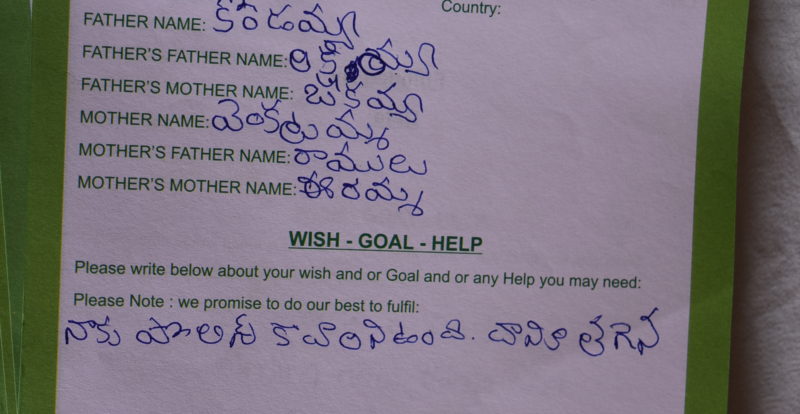 Country:
FATHER NAME: కొండయ్య
FATHER'S FATHER NAME:
FATHER'S MOTHER NAME:
MOTHER NAME: వెంకటమ్మ
MOTHER'S FATHER NAME: రాములు
MOTHER'S MOTHER NAME: ఈరమ్మ
WISH - GOAL - HELP
Please write below about your wish and or Goal and or any Help you may need:
Please Note : we promise to do our best to fulfil:
నాకు పొలిస్ కావాలనిఉంది.